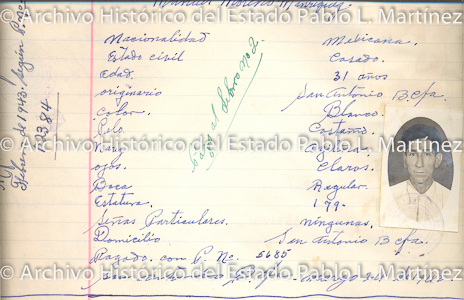 © Archivo Histórico del Estado Pablo L. Martínez
Manuel Moreno
Nacionalidad Mexicana.
Estado civil Casado.
Edad. 31 años
originario San Antonio B. Cfa.
Color. Blanco.
© Archivo Histórico del Estado Pablo L. Martínez
Pelo. Castaño.
Nariz
ojos. Claros.
Boca Regular.
Estatura. 179-
Señas Particulares. ningunas.
Domicilio San Antonio B Cfa.
Pagado. con C. No. 5685
© Archivo Histórico del Estado Pablo L. Martínez
de 1943. según
2384
Pasa al Libro No 2.